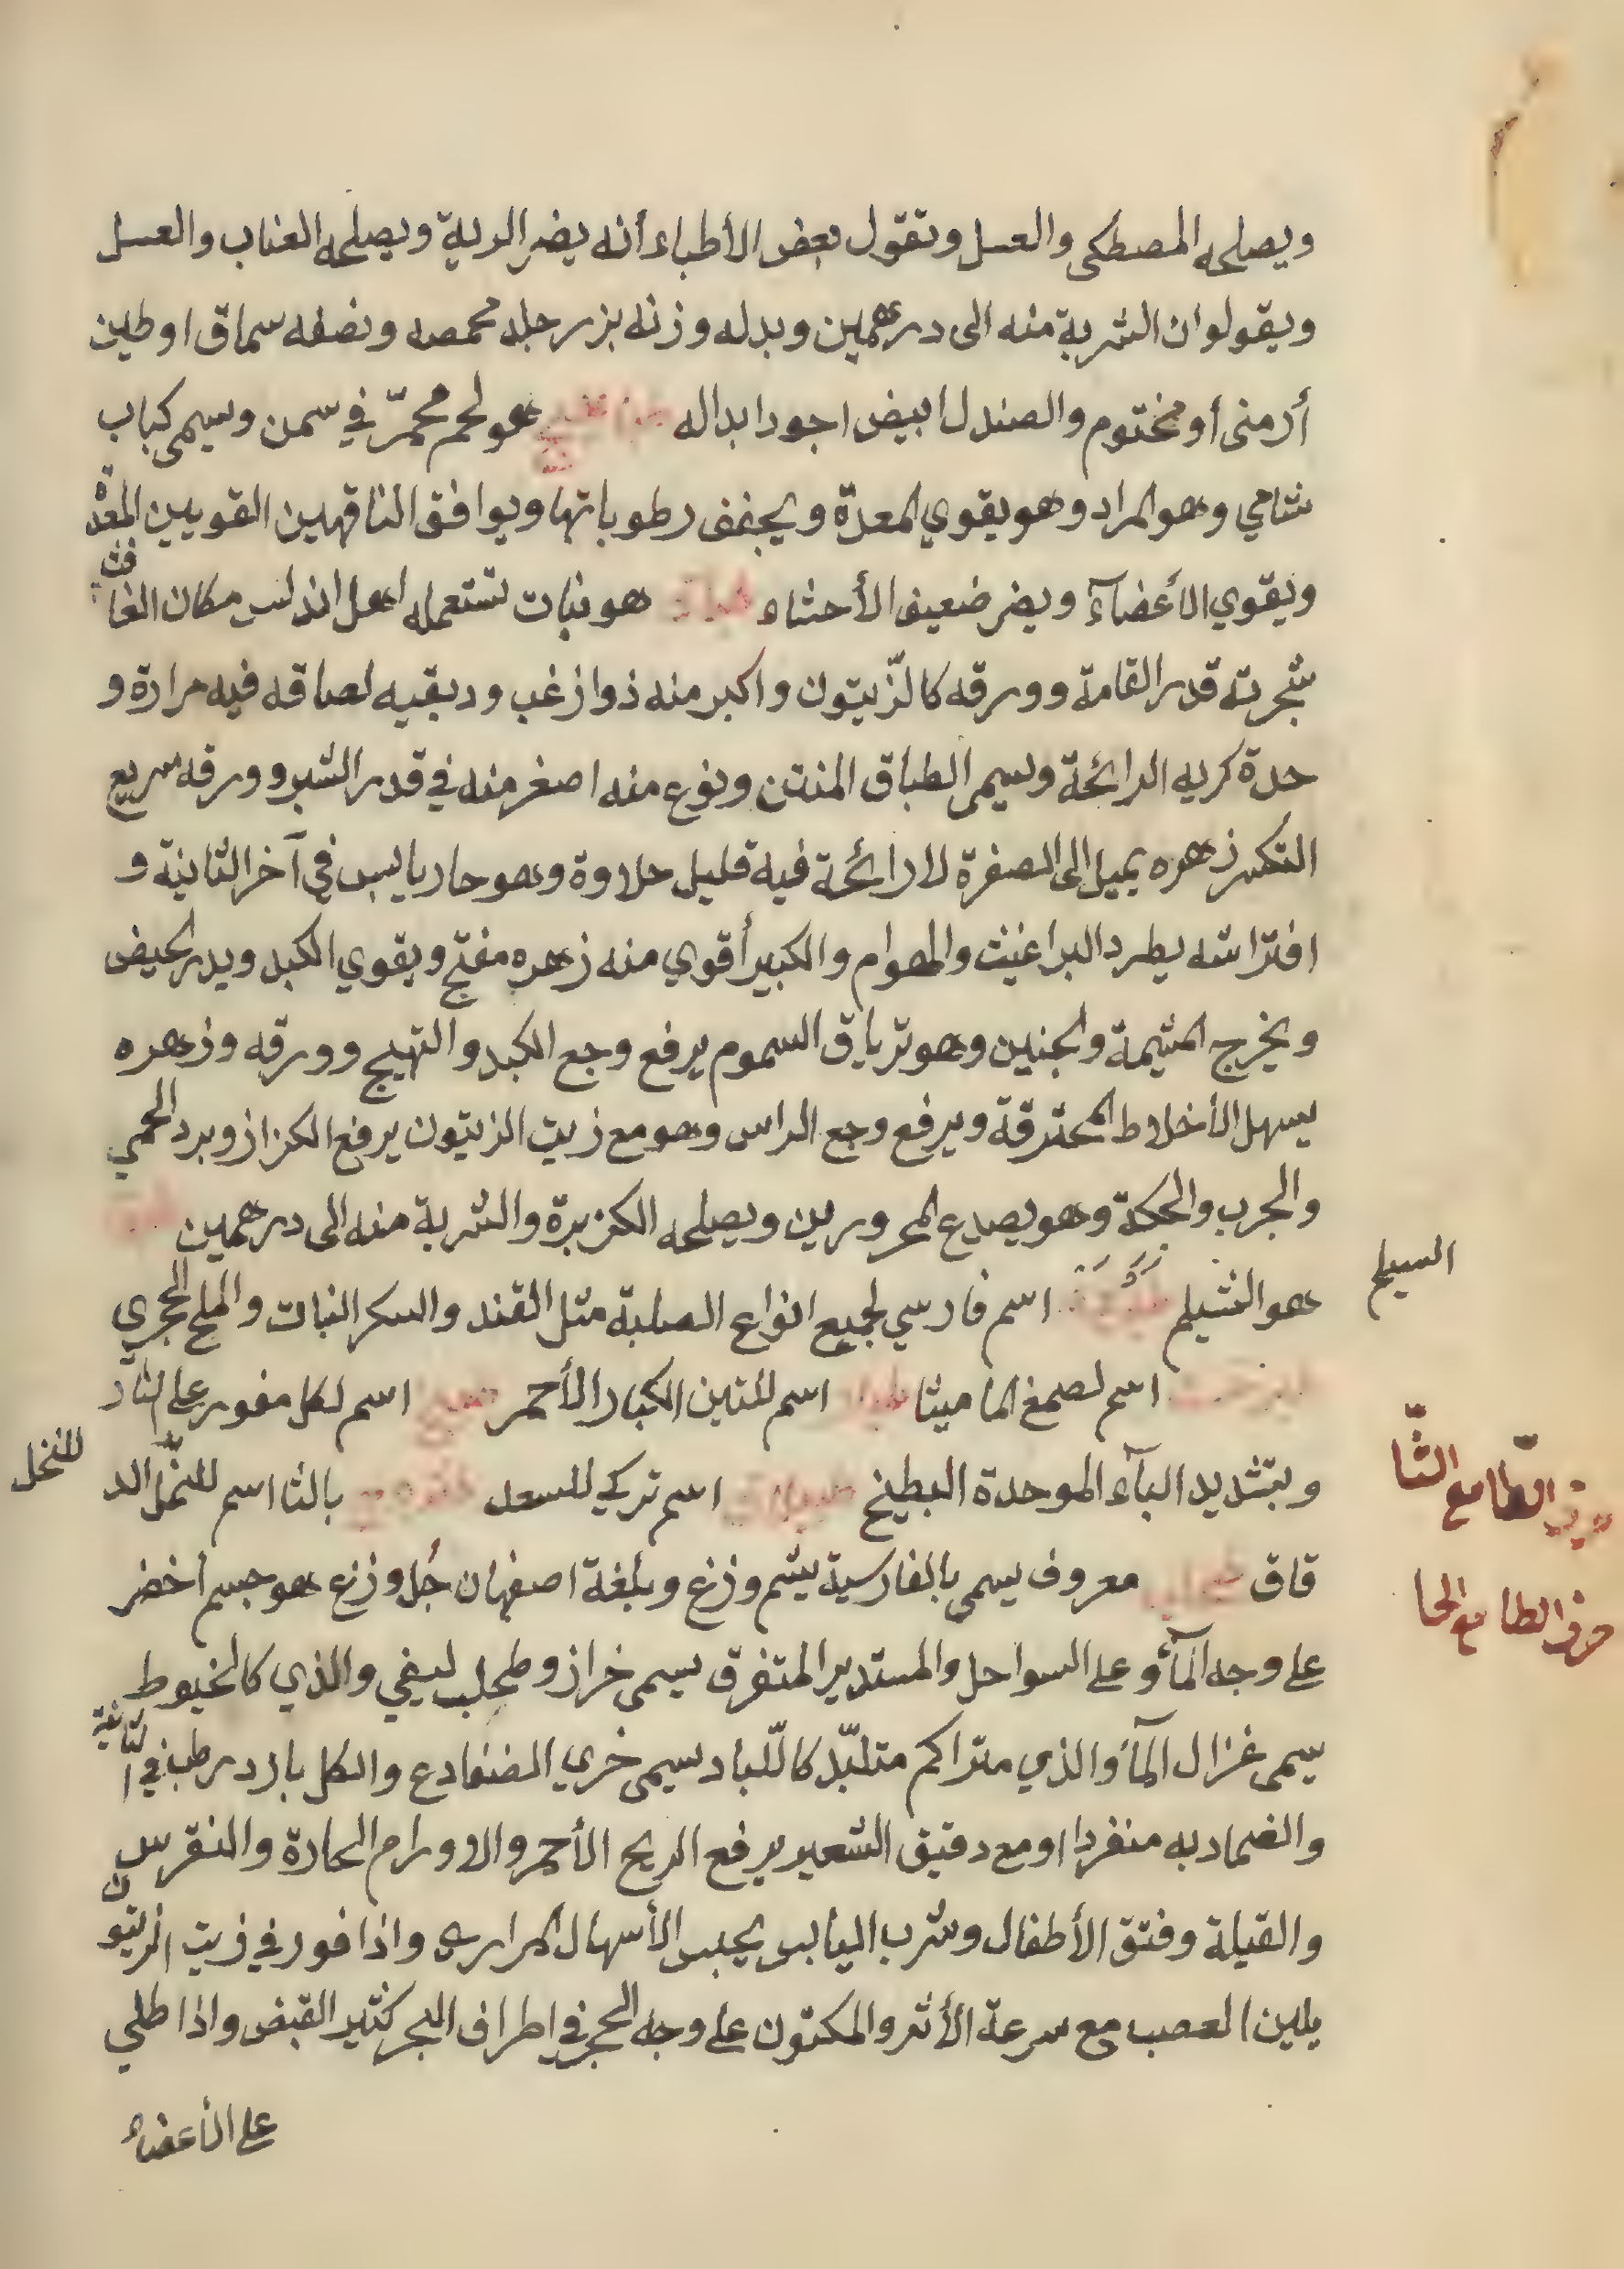 ويصلحه المصطكى والعسل وتقول بعض الأطباء أنه يضر الرية ويصلحه العناب والعسل
ويقولوان الشربة منه الى درهمين وبدله وزنه بزر رجله محمصه ونصفه سماق اوطين
أرمنى أو مختوم والصندل ابيض اجود ابداله هو لحم محمّر في سمن ويسمى كباب
شامي وهو المراد وهو يقوي المعدّة ويجفف رطوباتها ويوافق الناقهين القويين المعدة
ويقوي الأعضآء ويضر ضعيف الأحشاء طباق هو نبات تستعمله اهل اندلس مكان الغافث
شجرته قدر القامة وورقه كالزّيتون واكبر منه ذو ازغب ودبقيه لصاقه فيه مرارة و
حدة كريه الرائحة ويسمى الطباق المنتن ونوع منه اصغر منه في قدر الشبر وورقه سريع
التكسر زهره يميل الى الصفرة لا رائحة فيه قليل حلاوة وهو حار يابس في آخر الثانية و
افتراشه يطرد البراغيث والهوام والكبير أقوي منه زهره مفتح ويقوي الكبد ويدر الحيض
ويخرج المشيمة والجنين وهو ترياق السموم يرفع وجع الكبد والتهيج وورقه وزهره
يسهل الأخلاط المحترقة ويرفع وجع الراس وهو مع زيت الزيتون يرفع الكزاز وبرد الحمي
والجرب والحكة وهو يصدع المحرورين ويصلحه الكزبرة والشربة منه الى درهمين
هو الشيلم اسم فارسي لجميع انواع الصلبة مثل القند والسكر النبات والملح الحجري
السيلم
اسم لصمغ الماميثا اسم للتين الكبار الأحمر اسم لكل مفور على النار
وبتشديد البآء الموحدة البطيخ اسم تركي للسعد بالثا اسم للنمّل الد
للنخل
حرف الطّا مع الثّا
قاق طحلب معروف يسمى بالفارسية پشم وزغ وبلغة اصفهان جُل وزغ هو جسم اخضر
حرف الطا مع الحا
على وجه المآ وعلى السواحل والمستدير المتفرق يسمى خراز وطحلب ليفي والذي كالخيوط
يسمى غزال المآ والذي متراكم متلبّد كاللّباد يسمى خري الضفادع والكل بارد رطب في الثانية
والضماد به منفردا او مع دقيق الشعير يرفع الريح الأحمر والاورام الحارة والنقرس
والقيلة وفتق الأطفال وشرب اليابس يحبس الأسهال المراري واذا فور في زيت الزيتون
يلين العصب مع سرعة الأثر والمكتون على وجه الحجر في اطراف البحر كثير القبض واذا طلي
على الأعضاء